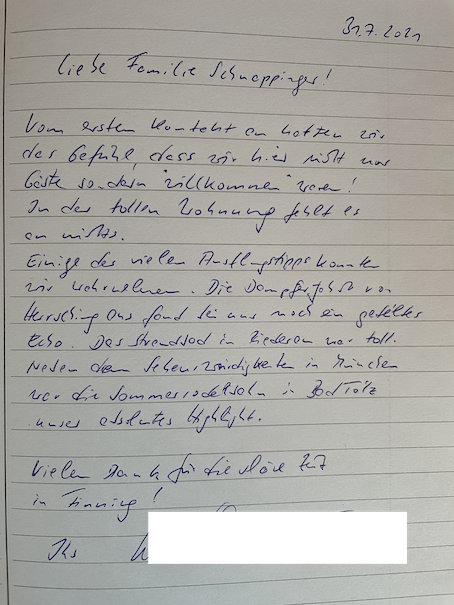 31.7.2021
Liebe Familie Schnappinger!
Vom ersten Kontakt an hatten wir
das Gefühl, dass wir hier nicht nur
Gäste sondern "willkommen" waren!
In der tollen Wohnung fehlt es
an nichts.
Einige der vielen Ausflugstipps konnten
wir wahrnehmen. Die Dampferfahrt von
Herrsching aus fand bei uns noch ein geteiltes
Echo. Das Strandbad in Riederau war toll.
Neben den Sehenswürdigkeiten in München
war die Sommerrodelbahn in Bad Tölz
unser absolutes Highlight.
Vielen Dank für die schöne Zeit
in Finning!
Ihr